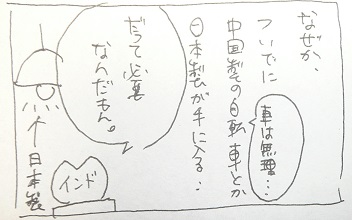 なぜか、
ついでに
中国製の自転車とか
日本製が手に入る…
車は無理…
だって必要
なんだもん。
日本製
インド